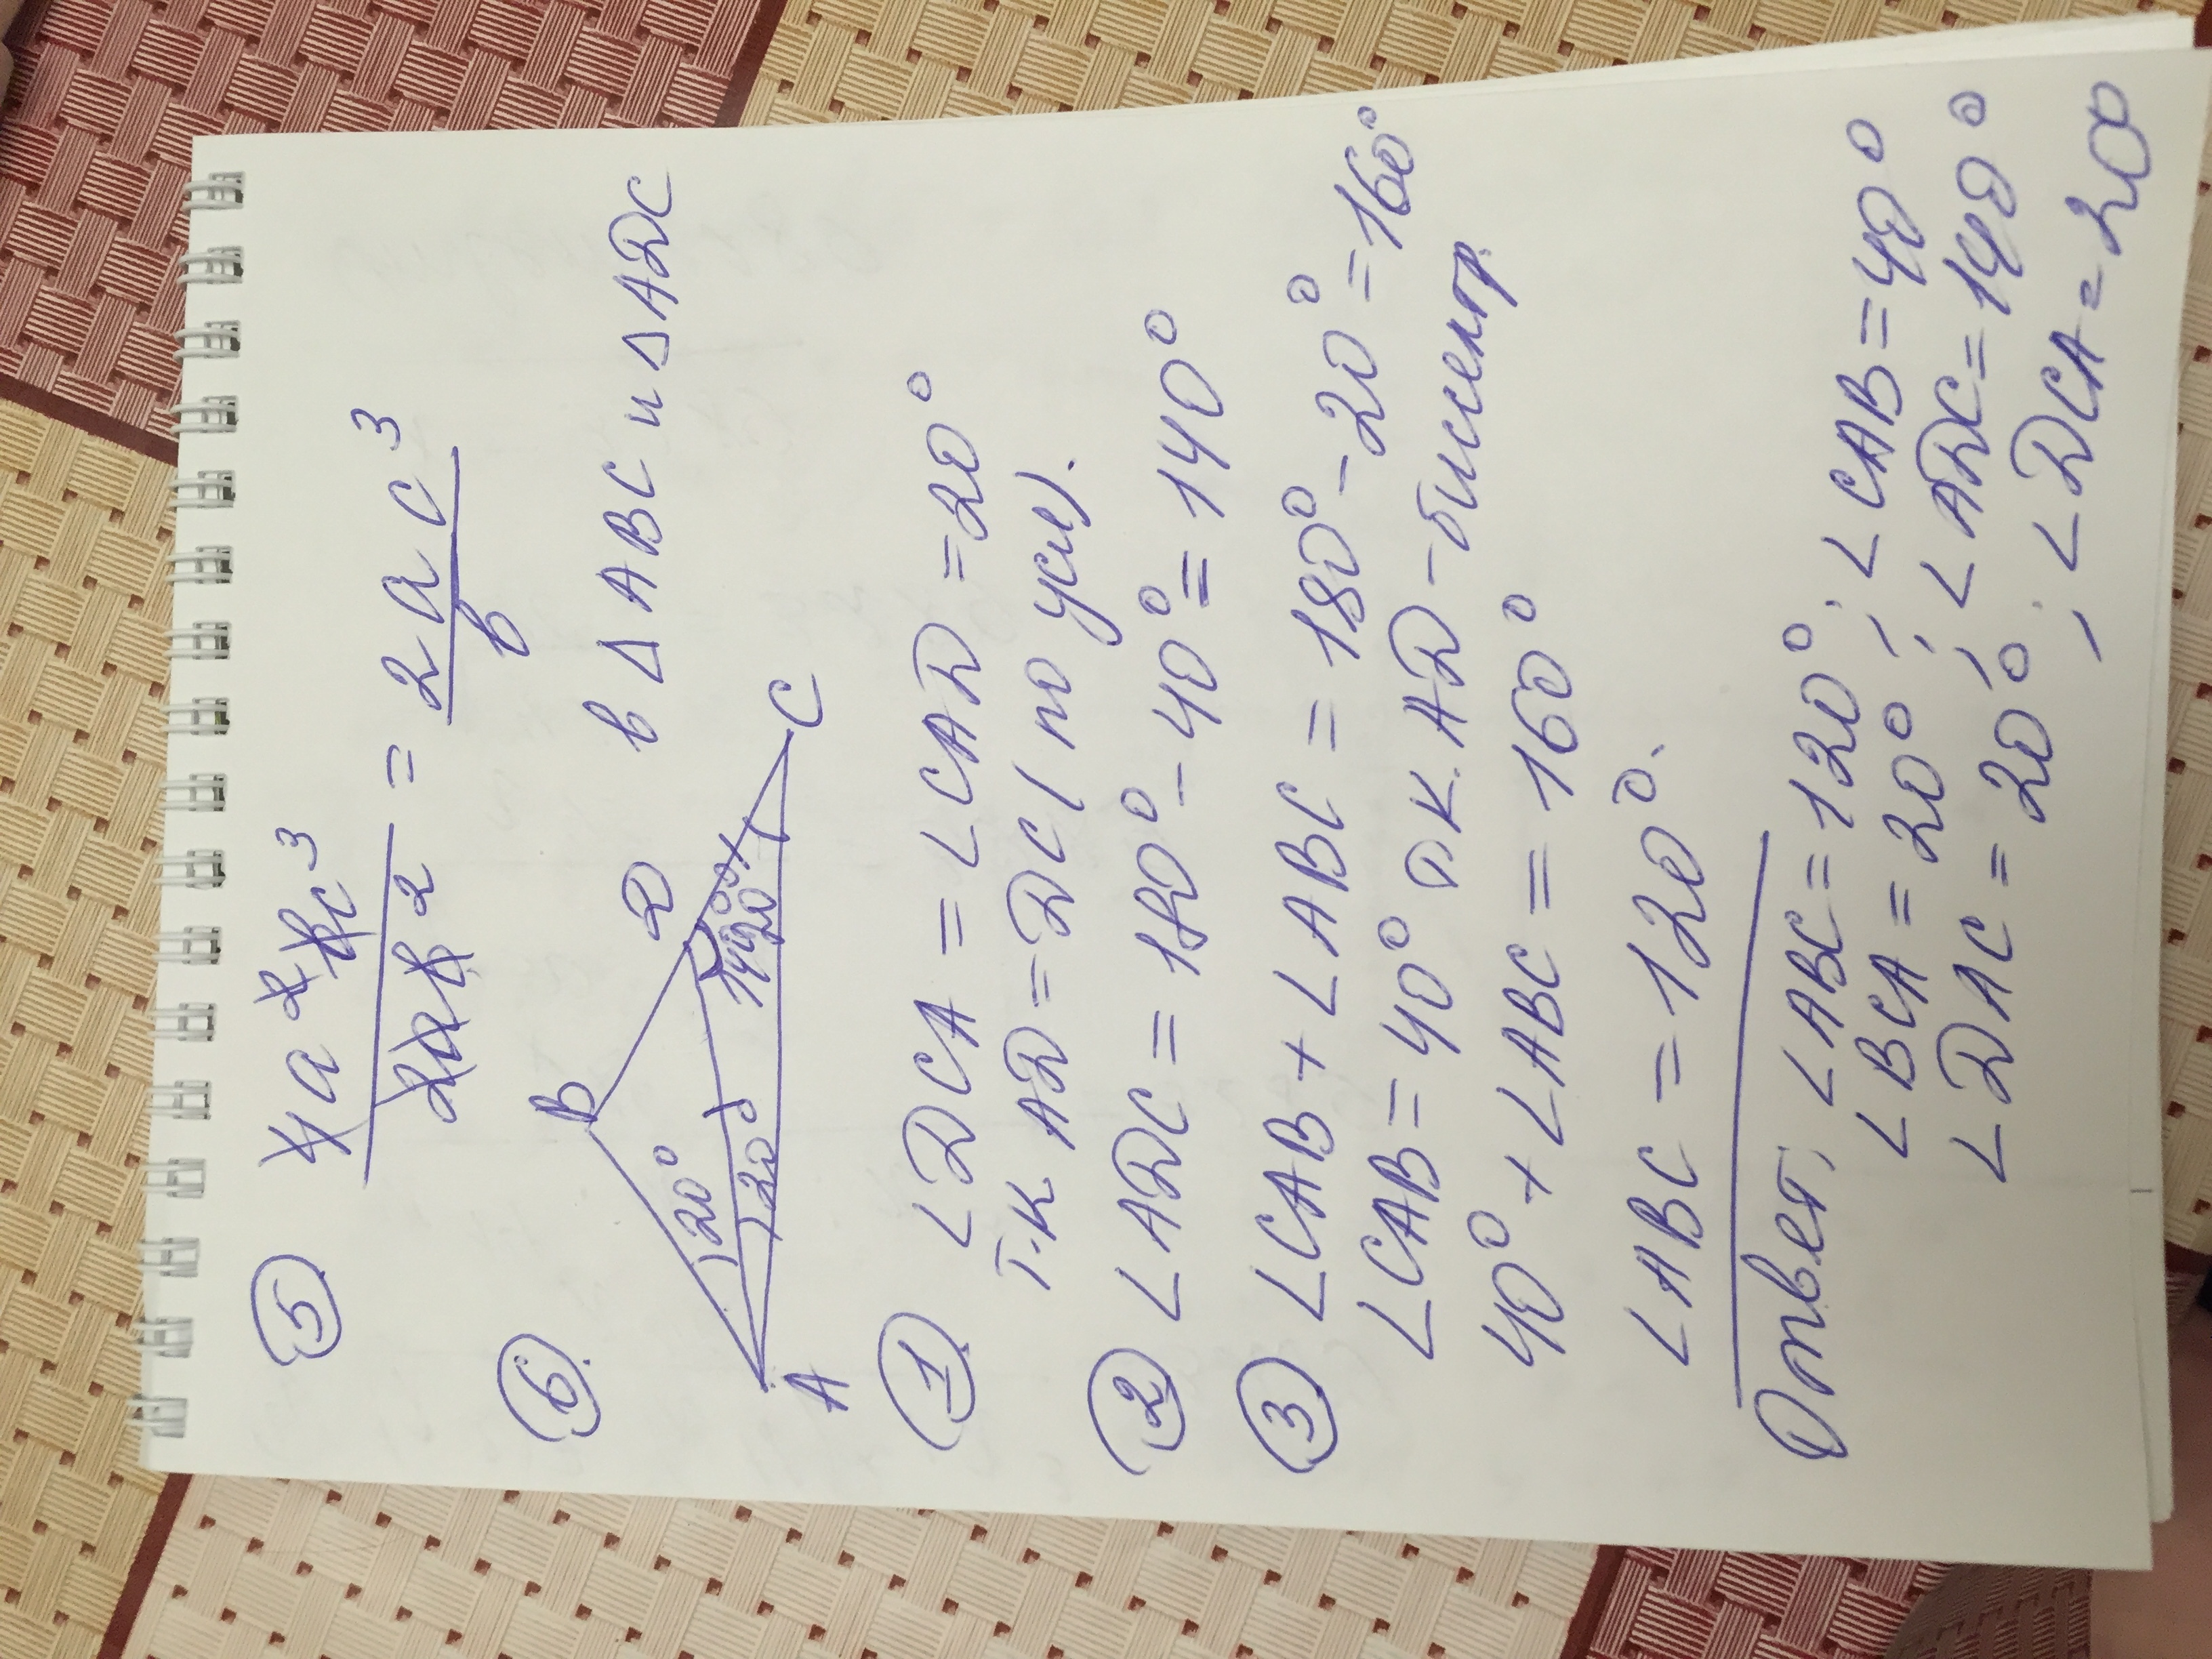 5
4a²bc³ / 2ab² = 2ac³ / b
6
в Δ ABC и Δ ADC
B
D
20°
20°
140°
20°
A
C
1 ∠DCA = ∠CAD = 20°
т.к AD = DC (по усл).
2 ∠ADC = 180° - 40° = 140°
3 ∠CAB + ∠ABC = 180° - 20° = 160°
∠CAB = 40° т.к. AD - биссектр.
40° + ∠ABC = 160°
∠ABC = 120°.
Ответ: ∠ABC = 120°; ∠CAB = 40°
∠BCA = 20°; ∠ADC = 140°
∠DAC = 20°; ∠DCA = 20°